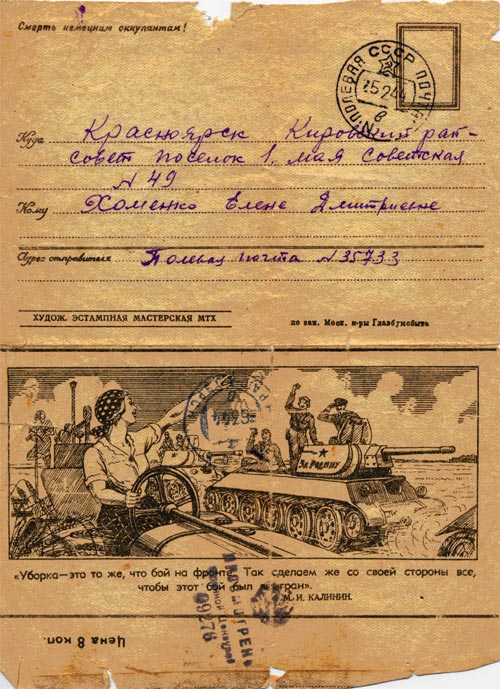 Смерть немецким оккупантам!
ПОЛЕВАЯ СССР ПОЧТА
Куда Красноярск Кировский рай-
совет поселок 1. мая Советская
№ 49
Кому Хоменко Елене Дмитриевне
Адрес отправителя Полевая почта №35733
ХУДОЖ. ЭСТАМПНАЯ МАСТЕРСКАЯ МТХ
по зак. Моск. к-ры Главбумсбыта
За Родину
«Уборка—это то же, что бой на фронте. Так сделаем же со своей стороны все,
чтобы этот бой был выигран».
М. И. КАЛИНИН.
ПРОСМОТРЕНО
Военной Цензурой
09276
Цена 8 коп.